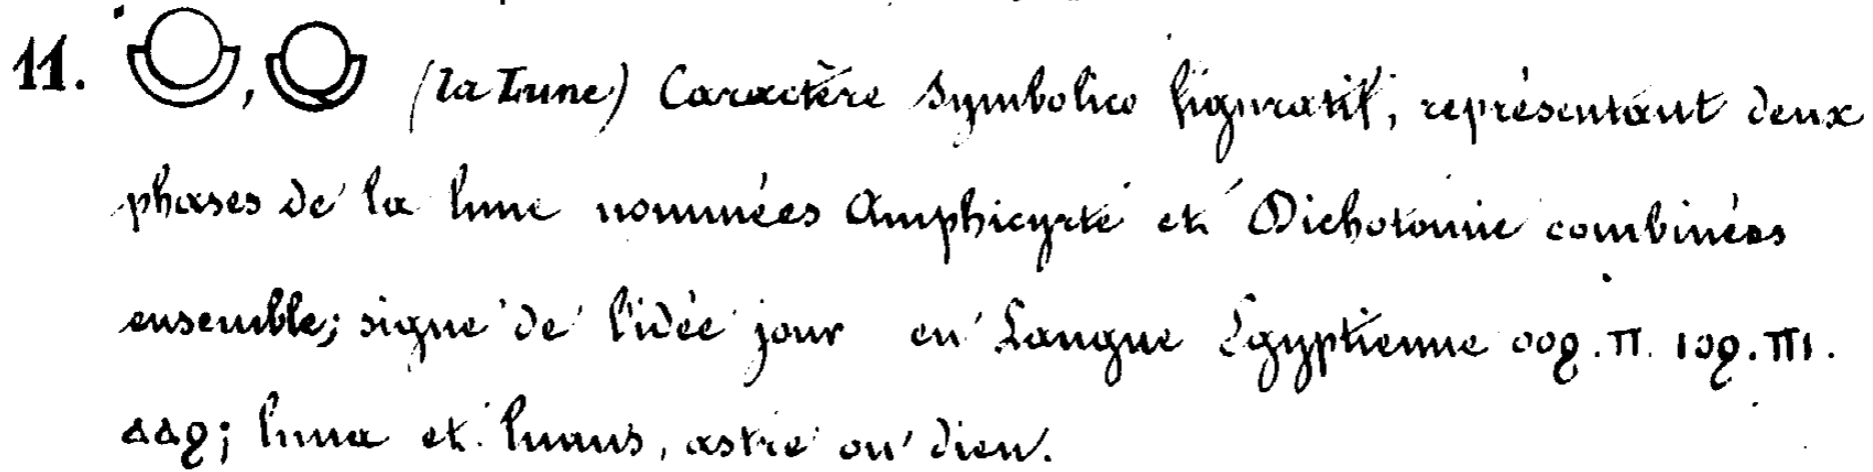 11. , (la Lune) Caractère symbolico figuratif, représentant deux
phases de la lune nommées Amphicyrte et Dichotomie combinées
ensemble; signe de l'idée jour en Langue Egyptienne ⲟⲟϩ. ⲡ. ⲓⲟϩ. ⲡⲓ.
ⲁⲁϩ; luna et lunus, astre ou dieu.